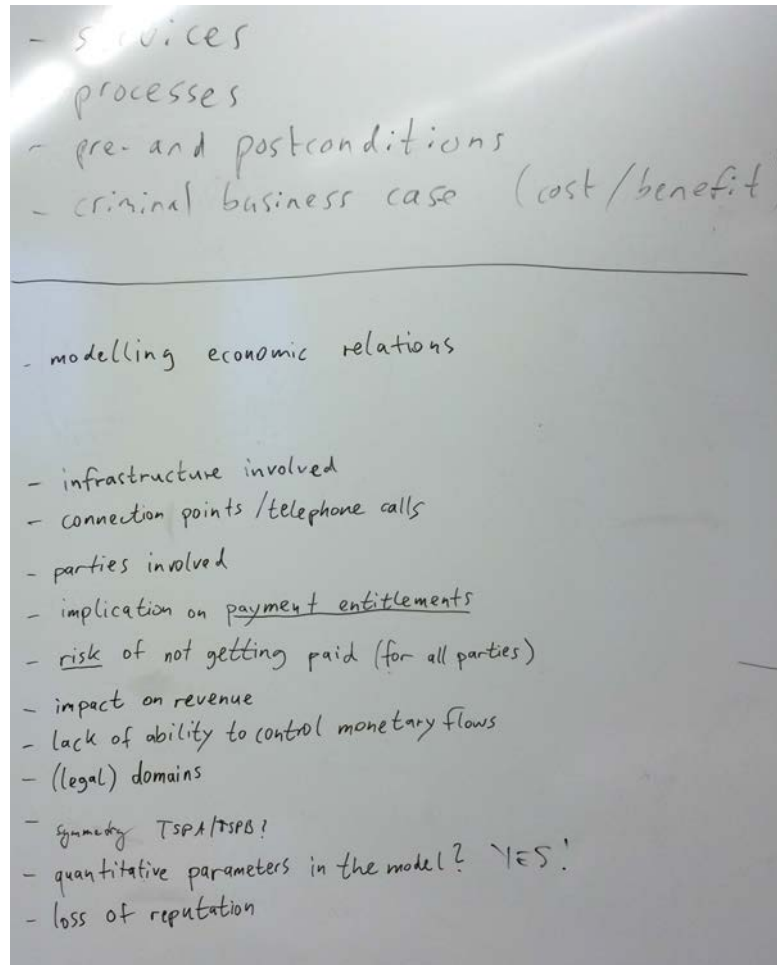 - services
processes
- pre- and postconditions
- criminal business case (cost/benefit
- modelling economic relations
- infrastructure involved
- connection points/telephone calls
- parties involved
- implication on payment entitlements
- risk of not getting paid (for all parties)
- impact on revenue
- lack of ability to control monetary flows
- (legal) domains
- symmetry TSPA/TSPB?
- quantitative parameters in the model? YES!
- loss of reputation